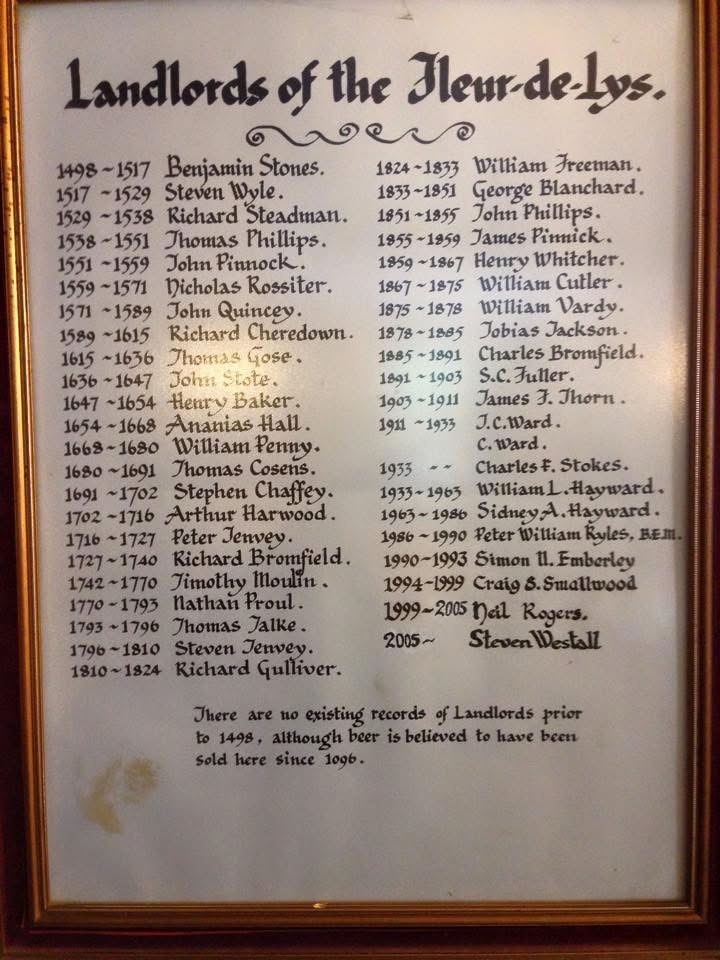 Landlords of the Fleur-de-Lys.
1498 ~ 1517 Benjamin Stones.
1517 ~ 1529 Steven Wyle.
1529 ~ 1538 Richard Steadman.
1538 ~ 1551 Thomas Phillips.
1551 ~ 1559 John Pinnock.
1559 ~ 1571 Nicholas Rossiter.
1571 ~ 1589 John Quincey.
1589 ~ 1615 Richard Cheredown.
1615 ~ 1636 Thomas Gose.
1636 ~ 1647 John Stote.
1647 ~ 1654 Henry Baker.
1654 ~ 1668 Ananias Hall.
1668 ~ 1680 William Penny.
1680 ~ 1691 Thomas Cosens.
1691 ~ 1702 Stephen Chaffey.
1702 ~ 1716 Arthur Harwood.
1716 ~ 1727 Peter Jenvey.
1727 ~ 1740 Richard Bromfield.
1742 ~ 1770 Timothy Moulin.
1770 ~ 1793 Nathan Proul.
1793 ~ 1796 Thomas Jalke.
1796 ~ 1810 Steven Jenvey.
1810 ~ 1824 Richard Gulliver.
1824 ~ 1833 William Freeman.
1833 ~ 1851 George Blanchard.
1851 ~ 1855 John Phillips.
1855 ~ 1859 James Pinnick.
1859 ~ 1867 Henry Whitcher.
1867 ~ 1875 William Cutler.
1875 ~ 1878 William Vardy.
1878 ~ 1885 Tobias Jackson.
1885 ~ 1891 Charles Bromfield.
1891 ~ 1903 S.C. Fuller.
1903 ~ 1911 James F. Thorn.
1911 ~ 1933 J.C. Ward.
C. Ward.
1933 - - Charles F. Stokes.
1933 ~ 1963 William L. Hayward.
1963 ~ 1986 Sidney A. Hayward.
1986 ~ 1990 Peter William Ryles, B.E.M.
1990 ~ 1993 Simon N. Emberley
1994 ~ 1999 Craig S. Smallwood
1999 ~ 2005 Neil Rogers.
2005 ~ Steven Westall
There are no existing records of Landlords prior
to 1498, although beer is believed to have been
sold here since 1096.